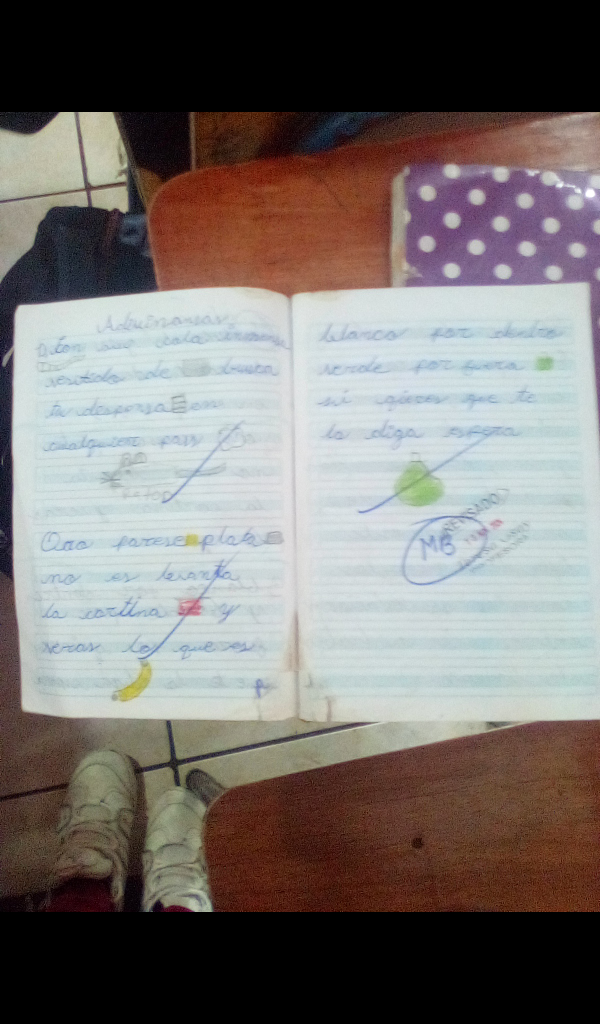 Adivinanzas
1) Con su cola
vestida de busca
tu despensa en
cualquier pais
Raton
Oro parese plata
no es levanta
la cortina y
veras lo que es
blanco por dentro
verde por fuera
si qieres que te
la diga espera
MB
REVISADO